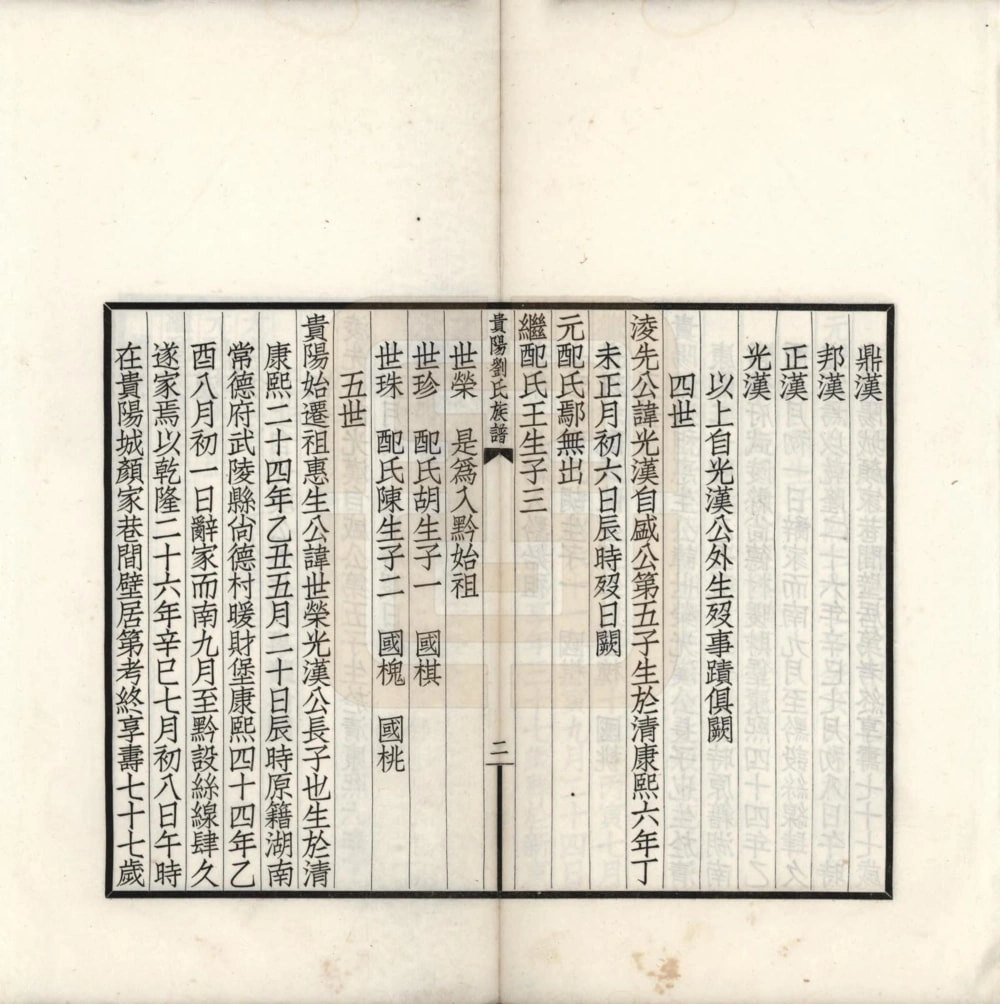 鼎漢
邦漢
正漢
光漢
以上自光漢公外生歿事蹟俱闕
四世
淩先公諱光漢自盛公第五子生於清康熙六年丁
未正月初六日辰時歿日闕
元配氏鄢無出
繼配氏王生子三
貴陽劉氏族譜
二
世榮 是爲入黔始祖
世珍 配氏胡生子一 國棋
世珠 配氏陳生子二 國槐 國桃
五世
貴陽始遷祖惠生公諱世榮光漢公長子也生於清
康熙二十四年乙丑五月二十日辰時原籍湖南
常德府武陵縣尙德村暖財堡康熙四十四年乙
酉八月初一日辭家而南九月至黔設絲線肆久
遂家焉以乾隆二十六年辛巳七月初八日午時
在貴陽城顏家巷間壁居第考終享壽七十七歲